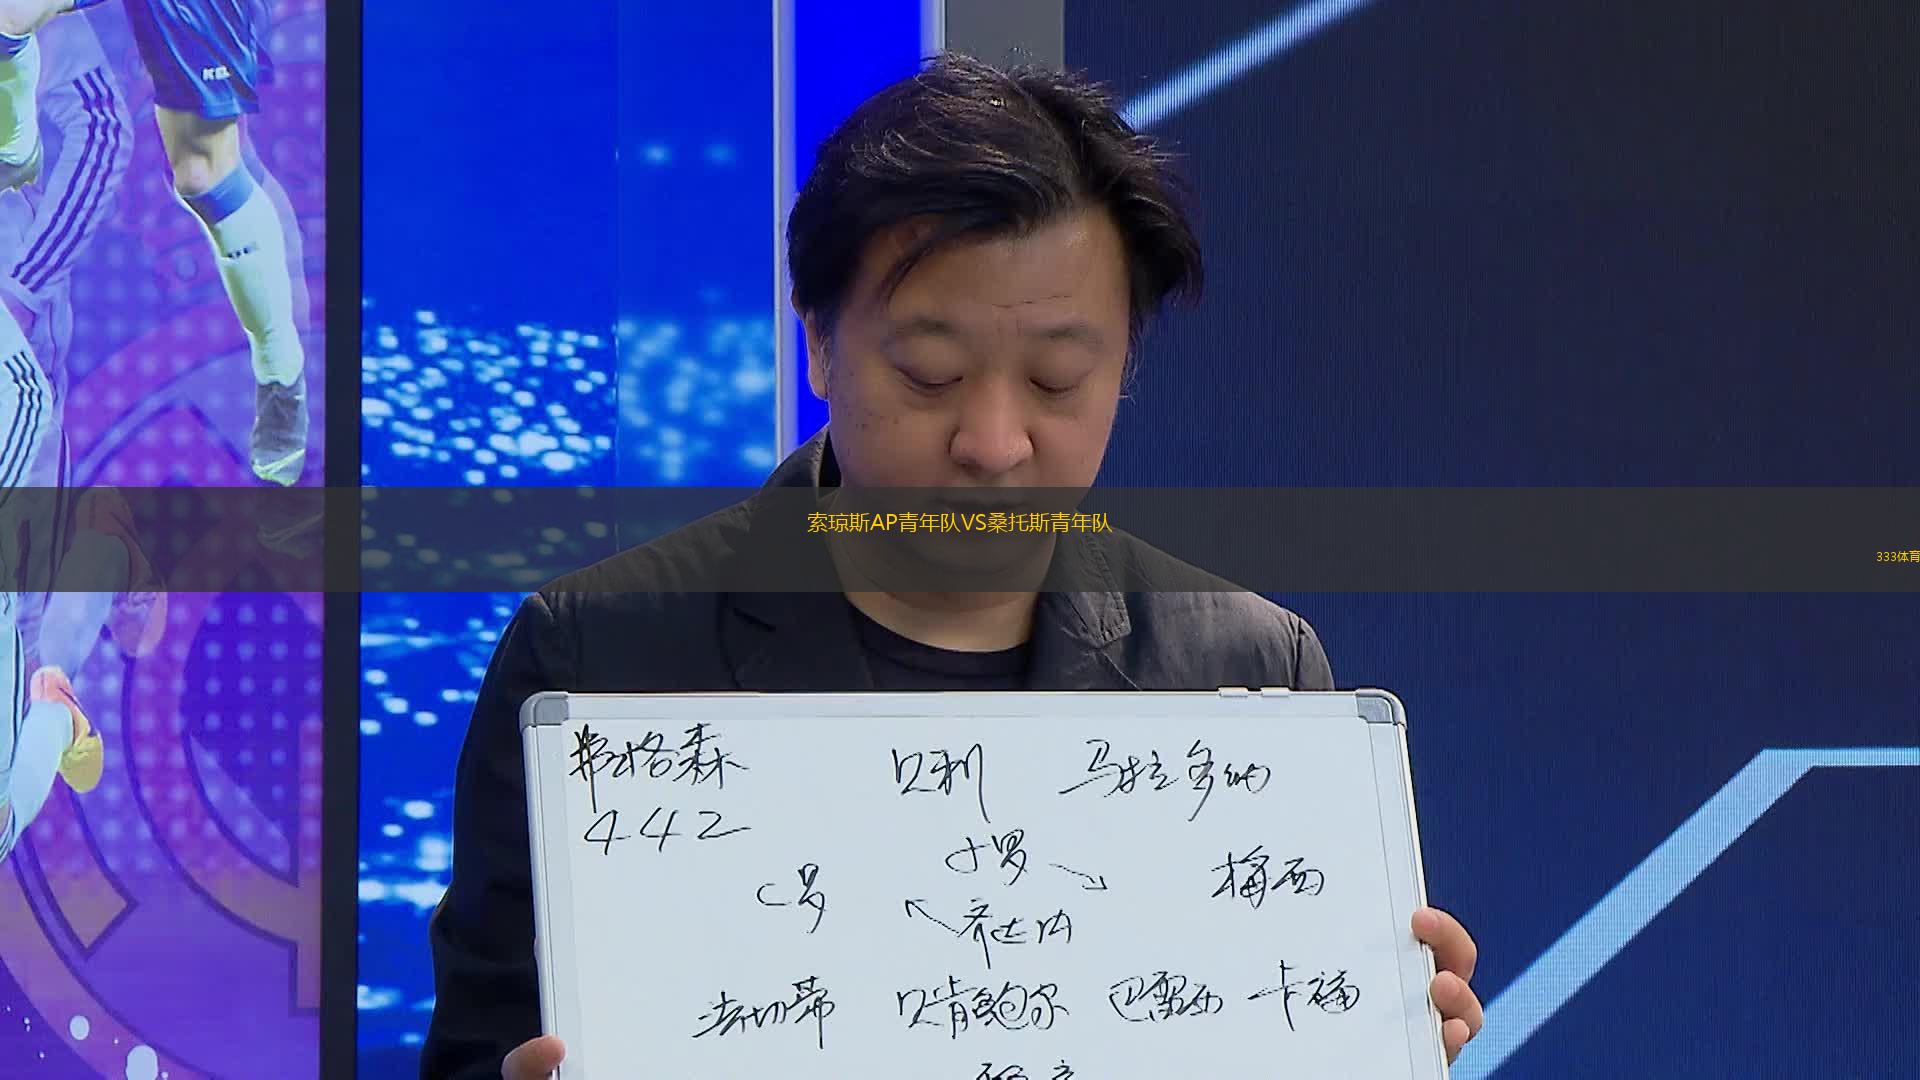 索琼斯AP青年队VS桑托斯青年队
333体育
弗格森 贝利 马拉多纳
442
小罗
C罗 梅西
齐达内
法切蒂 贝肯鲍尔 巴雷西 卡福